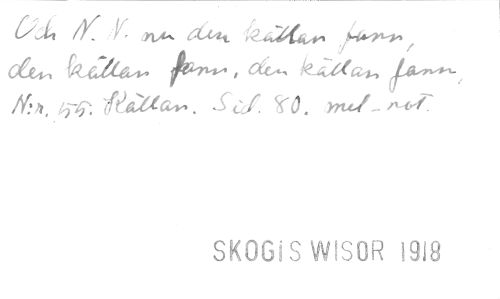 Och N. N. nu den källan fann,
den källan fann, den källan fann,
N:r. 55. Källan. Sid. 80. mel-not.
SKOGIS WISOR 1918